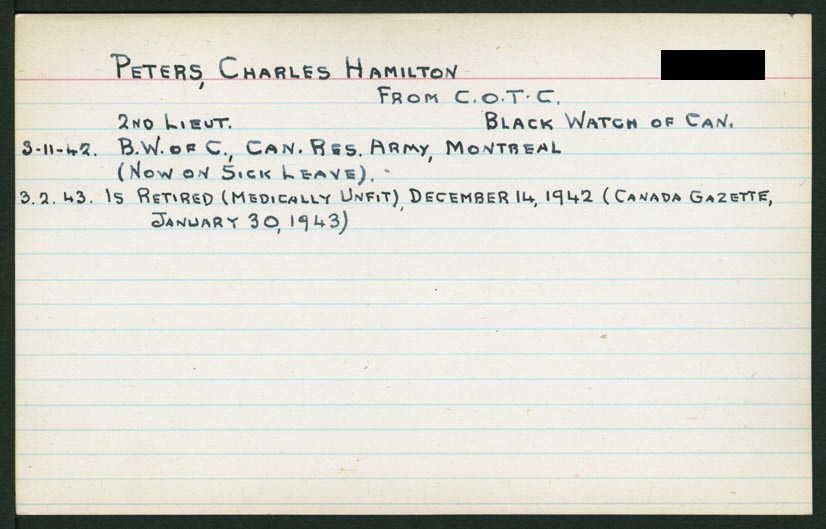 PETERS, CHARLES HAMILTON
FROM C.O.T.C.
2ND LIEUT. BLACK WATCH OF CAN.
3-11-42. B.W. OF C., CAN. RES. ARMY, MONTREAL
(NOW ON SICK LEAVE).
3.2.43. IS RETIRED (MEDICALLY UNFIT), DECEMBER 14, 1942 (CANADA GAZETTE,
JANUARY 30, 1943)